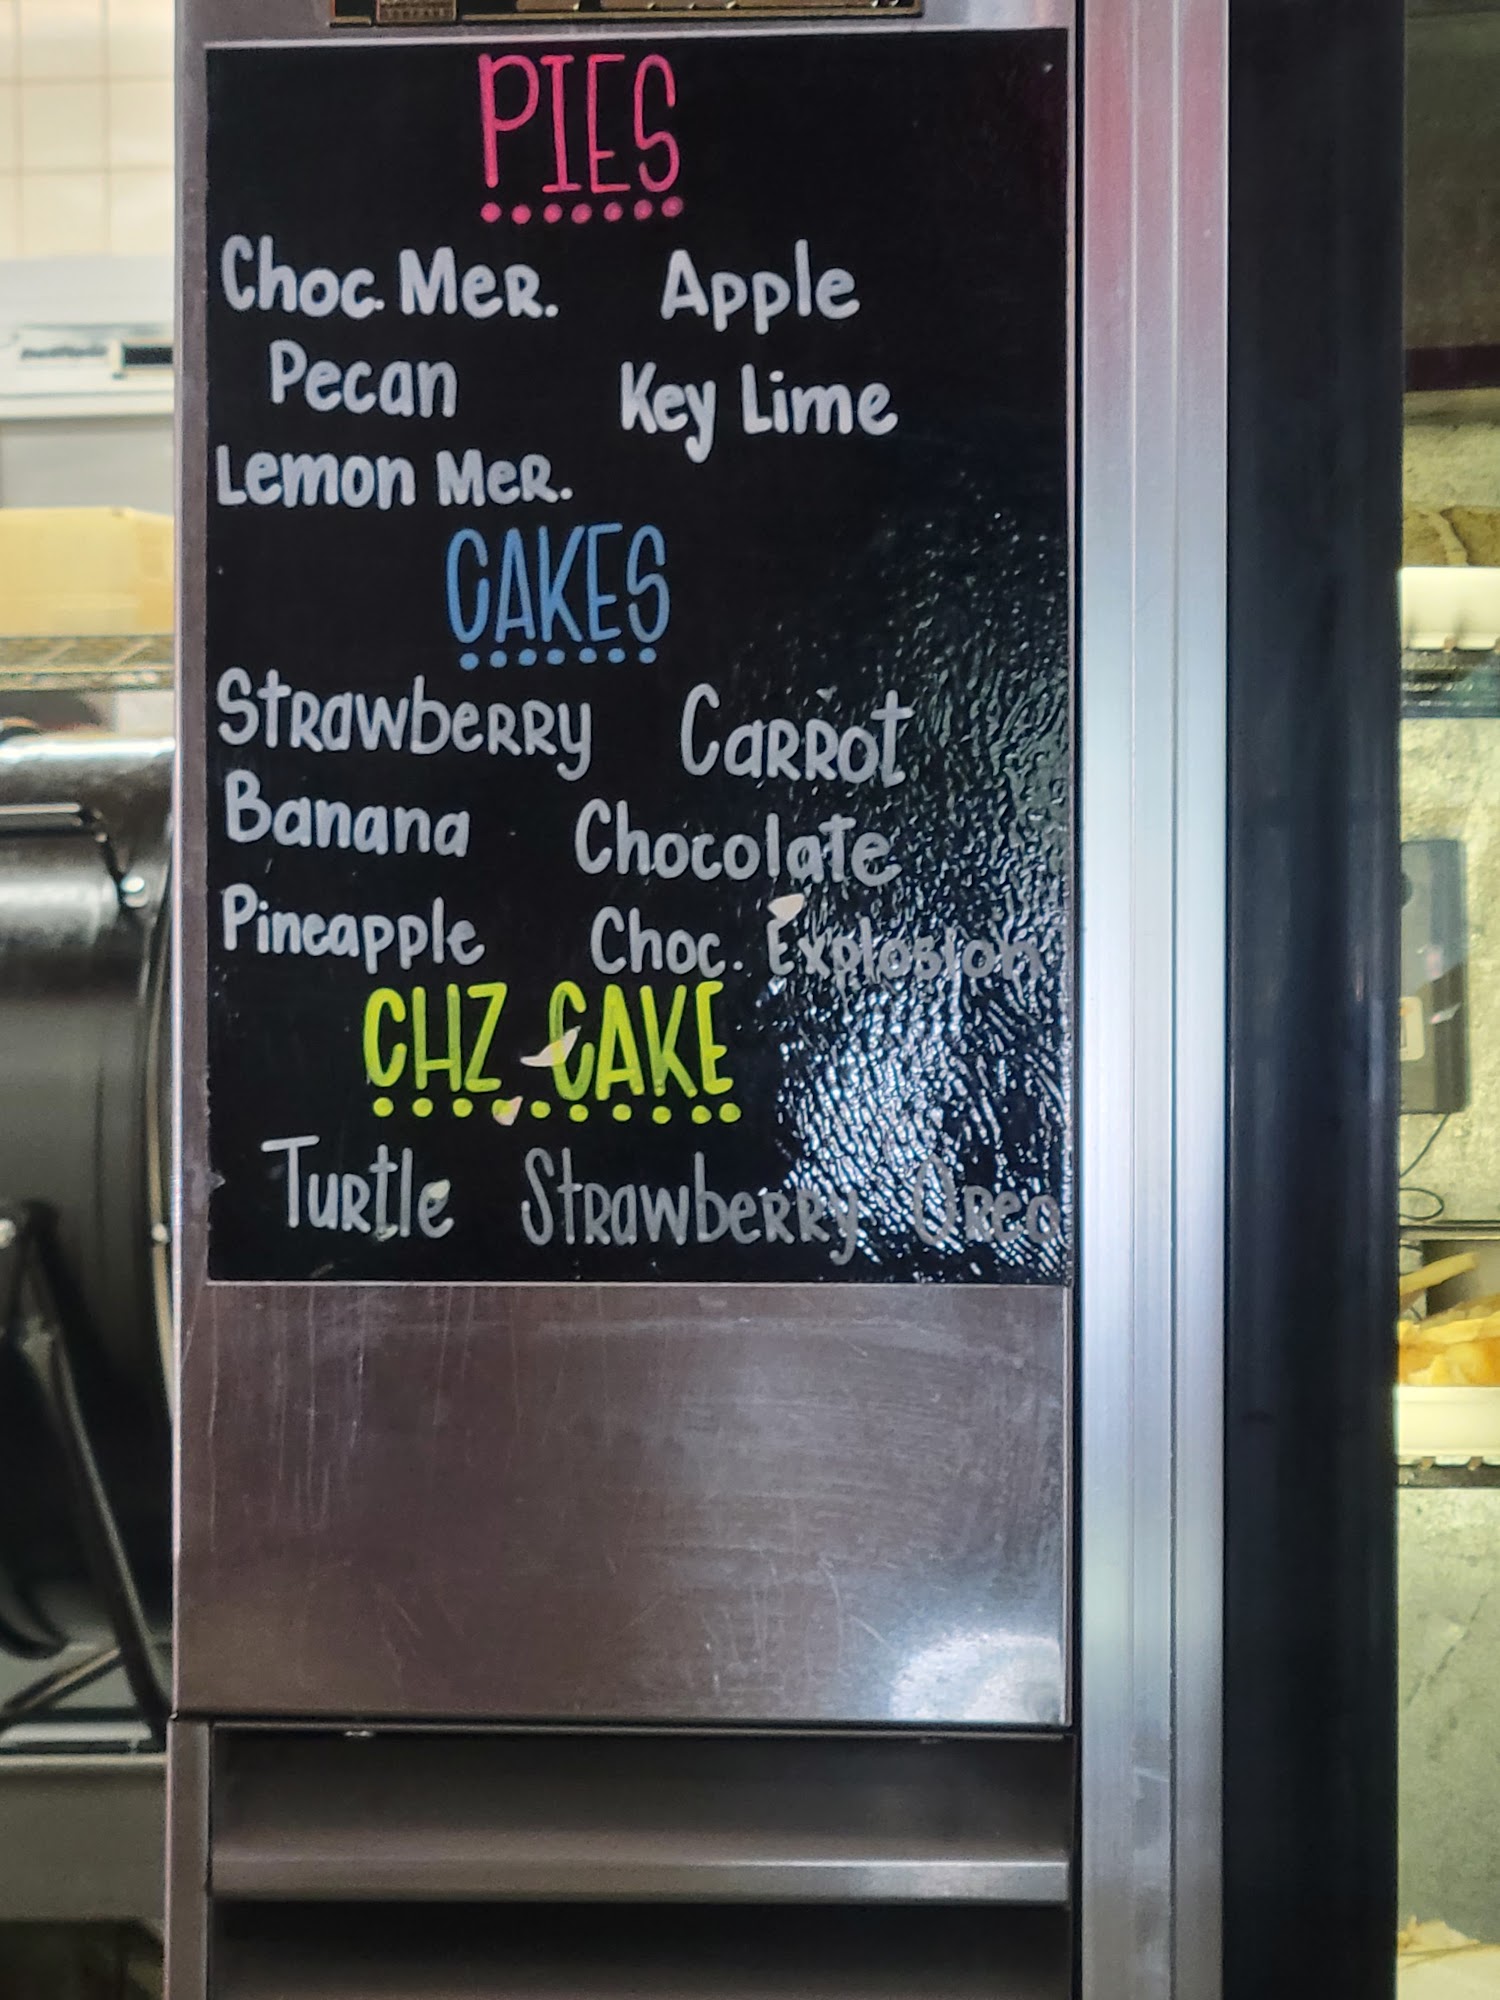 PIES
Choc. Mer. Apple
Pecan Key Lime
Lemon Mer.
CAKES
Strawberry Carrot
Banana Chocolate
Pineapple Choc. Explosion
CHZ CAKE
Turtle Strawberry Oreo